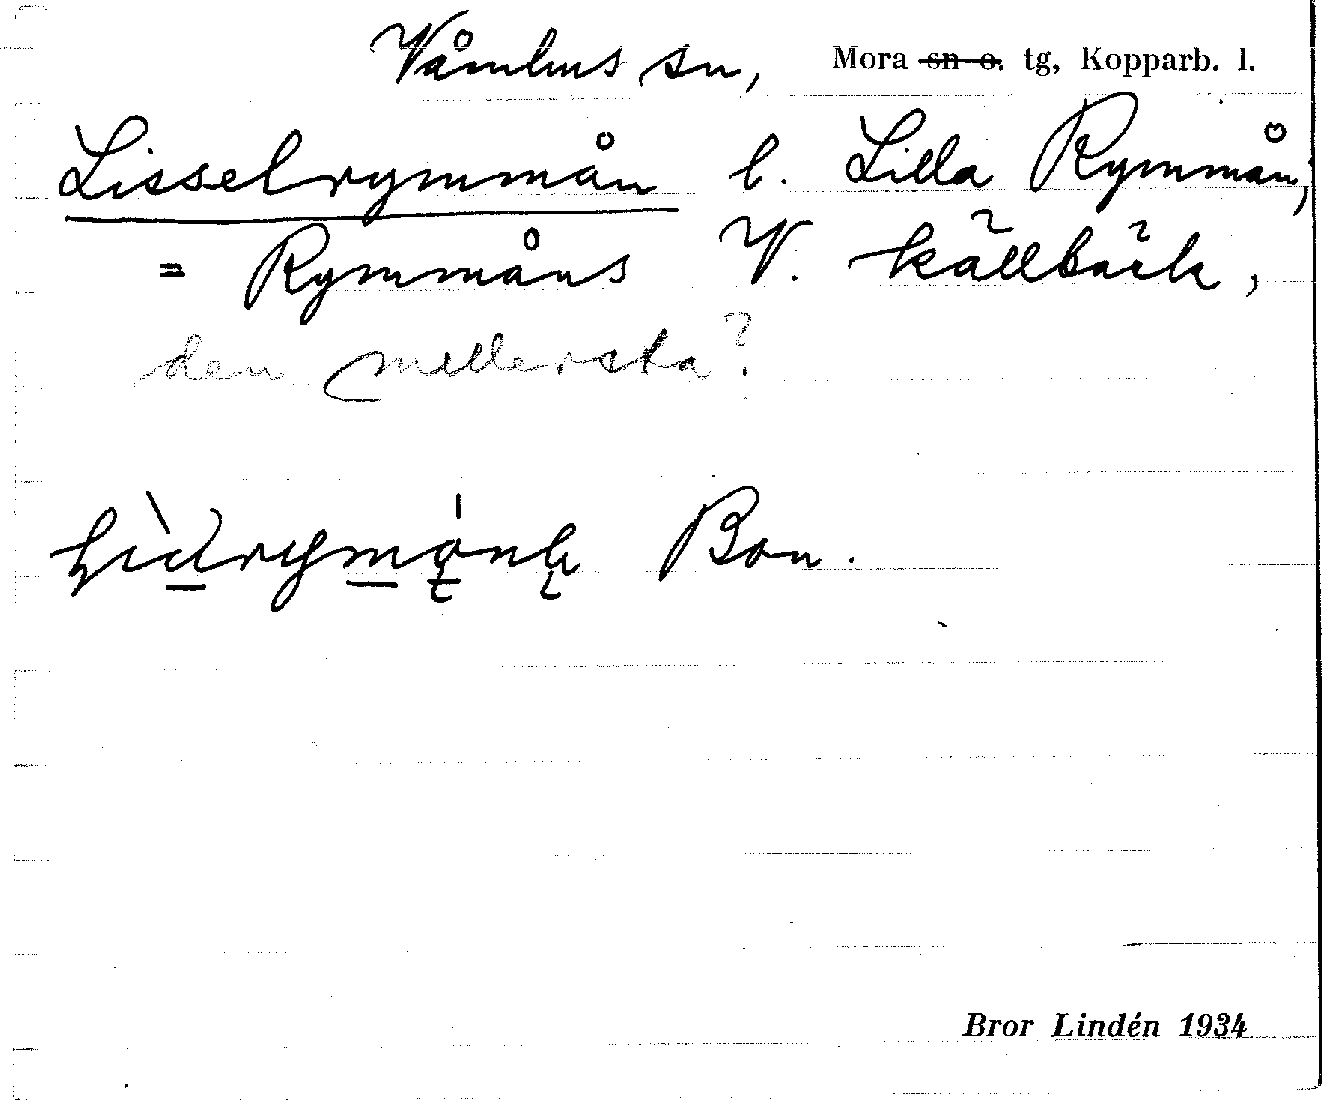 Våmhus sn, Mora sn o. tg, Kopparb. l.
Lisselrymmån l. Lilla Rymmån,
= Rymmåns V. källbäck,
den mellersta?
Bon.
Bror Lindén 1934